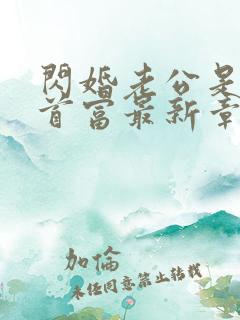 閃婚老公是
首富最新章
加倫
未经同意禁止转载